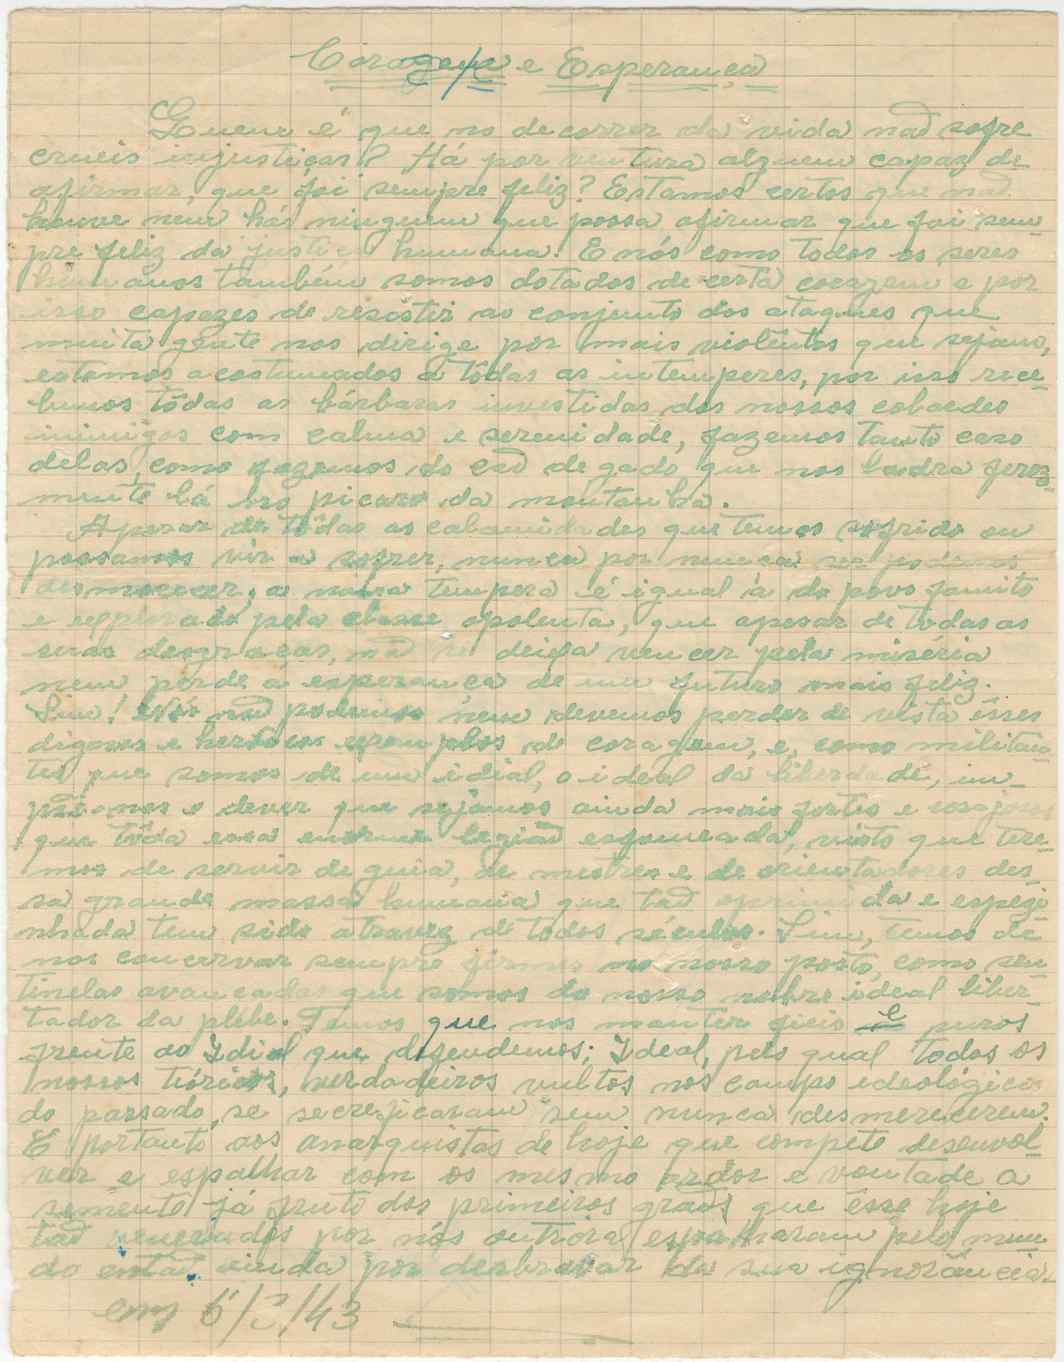 Coragem e Esperança
Quem é que no decorrer da vida não sofre
crueis injustiças? Há por ventura alguem capaz de
afirmar, que foi sempre feliz? Estamos certos que não
houve nem há ninguem que possa afirmar que foi sem-
pre feliz da justiça humana! E nós como todos os seres
humanos também somos dotados de certa coragem e por
isso capazes de resistir ao conjunto dos ataques que
muita gente nos dirige por mais violentos que sejam,
estamos acostumados a tôdas as intemperes, por isso rece-
bemos tôdas as bárbaras investidas dos nossos cobardes
inimigos com calma e serenidade, fazemos tanto caso
delas, como fazemos do cão de gado que nos ladra feroz-
mente lá no picaro da montanha.
Apesar de tôdas as calamidades que temos sofrido ou
possamos vir a sofrer, nunca por nunca podêmos
desmerecer, a nossa tempera é igual á do povo faminto
e explorado pela classe opolenta, que apesar de todas as
suas desgraças, não se deixa vencer pela miséria
nem perde a esperança de um futuro mais feliz.
Sim! Nós não podemos nem devemos perder de vista êsses
dignos e heróicos exemplos de coragem, e, como militan-
tes que somos de um idial, o ideal da liberdade, im-
põe-nos o dever que sejâmos ainda mais fortes e corajosos
que tôda essa enorme legião esfomeada, visto que tere-
mos de servir de guia, de mestres e de orientadores des-
sa grande massa humana que tão oprimida e espezi-
nhada tem sido atravez de todos séculos. Sim, temos de
nos concervar sempre firmes no nosso posto, como sen-
tinelas avançadas que somos do nosso nobre ideal liber-
tador da plebe. Temos que nos manter fieis e puros
frente ao Idial que defendemos; Ideal, pelo qual todos os
nossos tióricos, verdadeiros vultos nos campo ideológico
do passado, se secreficaram sem nunca desmerecerem.
E portanto aos anarquistas de hoje que compete desenvol-
ver e espalhar com os mesmo ardor e vontade a
semente já fruto dos primeiros grãos que êsse hoje
tão venerados por nós outrora espalharam pelo mun-
do então ainda por desbravar da sua ignorância.
em 6/3/43